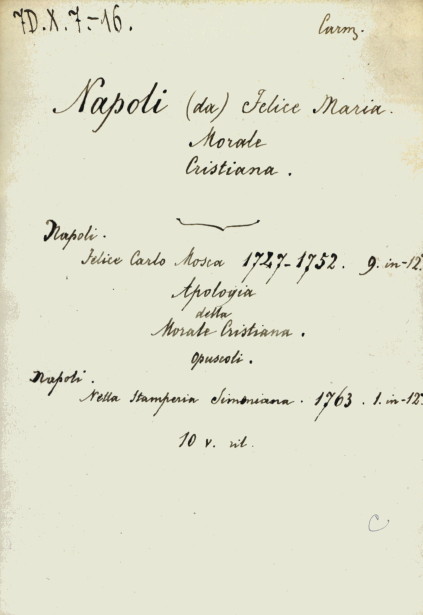 7D.X.7.-16.
Carm.
Napoli (da) Felice Maria.
Morale
Cristiana.
Napoli.
Felice Carlo Mosca 1727-1752. 9. in-12°
Apologia
della
Morale Cristiana.
Opuscoli.
Napoli.
Nella Stamperia Simoniana. 1763. 1. in-12°
10 v. ril.
C